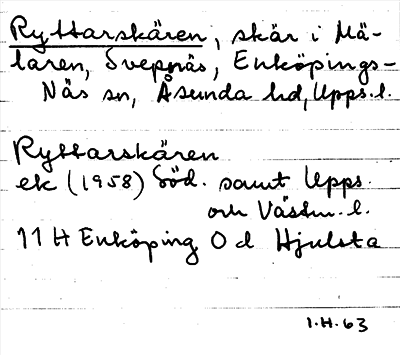 Ryttarskären, skär i Mä-
laren, Svepnäs, Enköpings-
Näs sn, Åsunda hd, Upps. l.
Ryttarskären
ek (1958) Söd. samt Upps.
och Västm. l.
11 H Enköping O d Hjulsta
I.H. 63